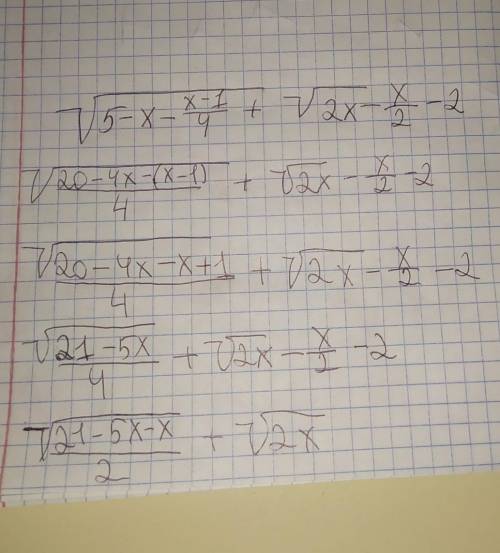 √(5-x-(x-1)/4) + √2x - x/2 - 2
√(20-4x-(x-1))/4 + √2x - x/2 - 2
√(20-4x-x+1)/4 + √2x - x/2 - 2
√(21-5x)/4 + √2x - x/2 - 2
√(21-5x-x)/2 + √2x